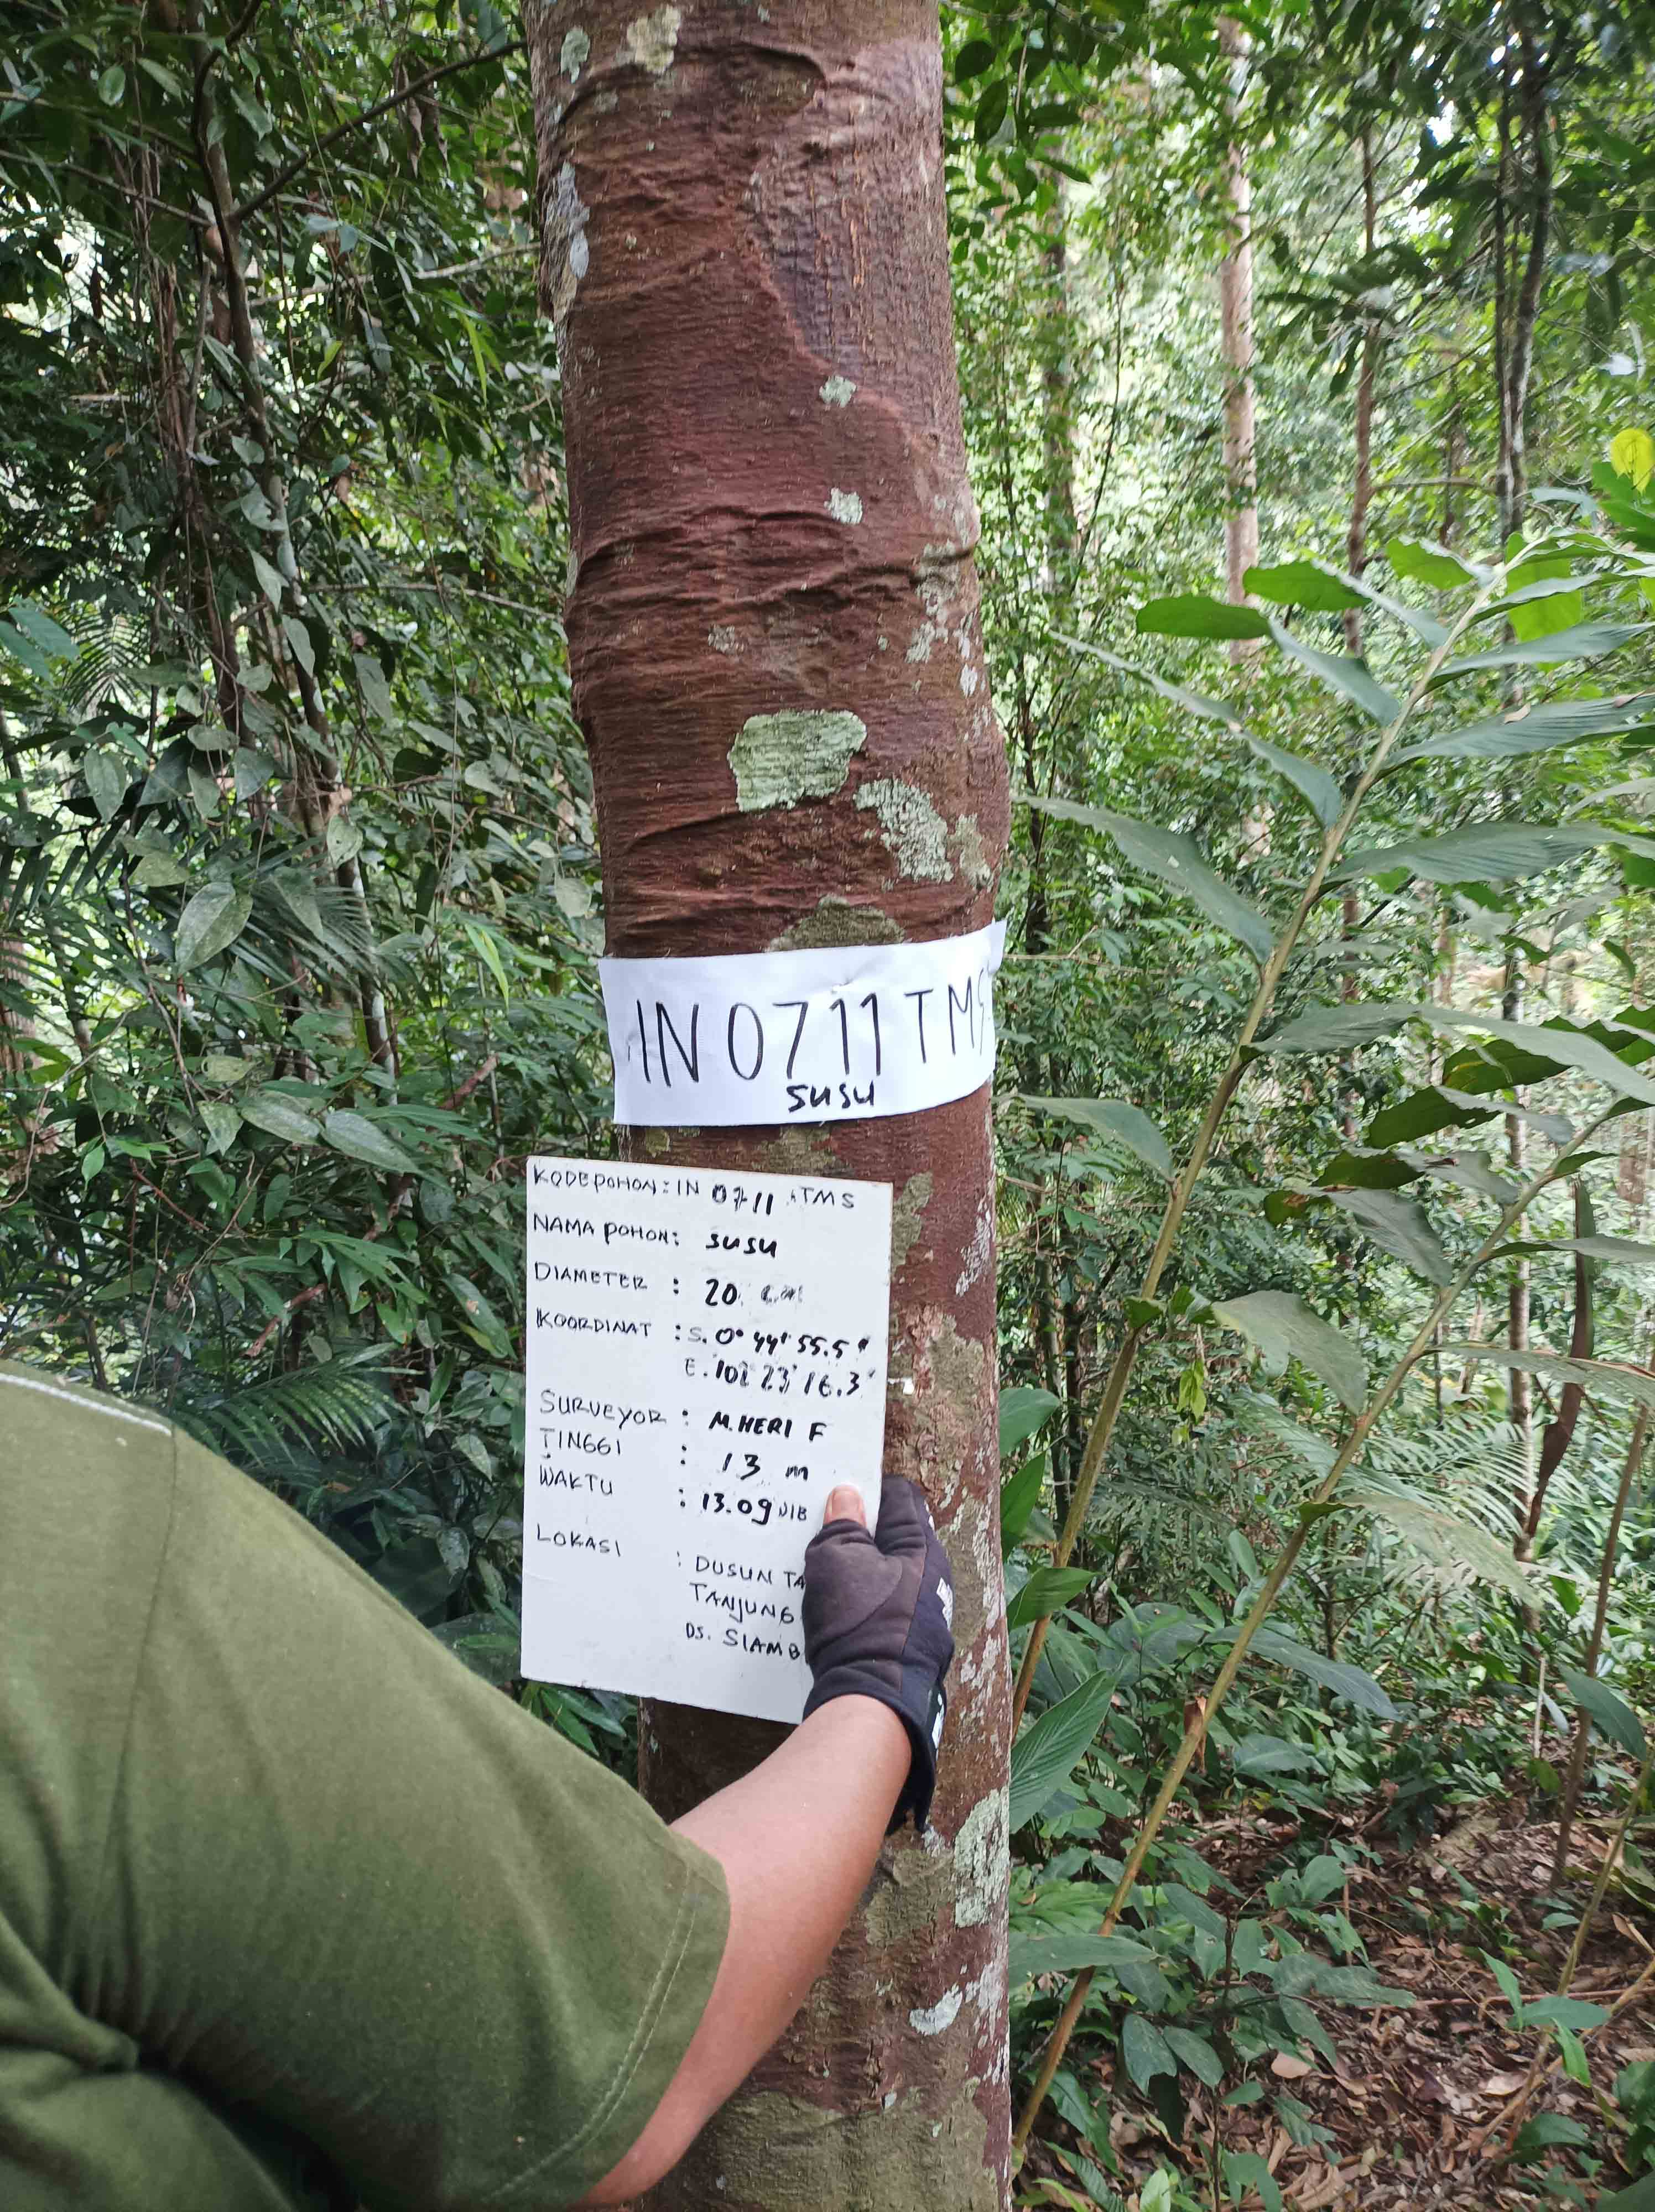 IN 0711 TMS
susu
KODE POHON : IN 0711 TMS
NAMA POHON : susu
DIAMETER : 20 cm
KOORDINAT : S. 0° 44' 55.5"
E. 102 23' 16.3"
SURVEYOR : M. HERI F
TINGGI : 13 m
WAKTU : 13.09 WIB
LOKASI : DUSUN
TANJUNG
DS.